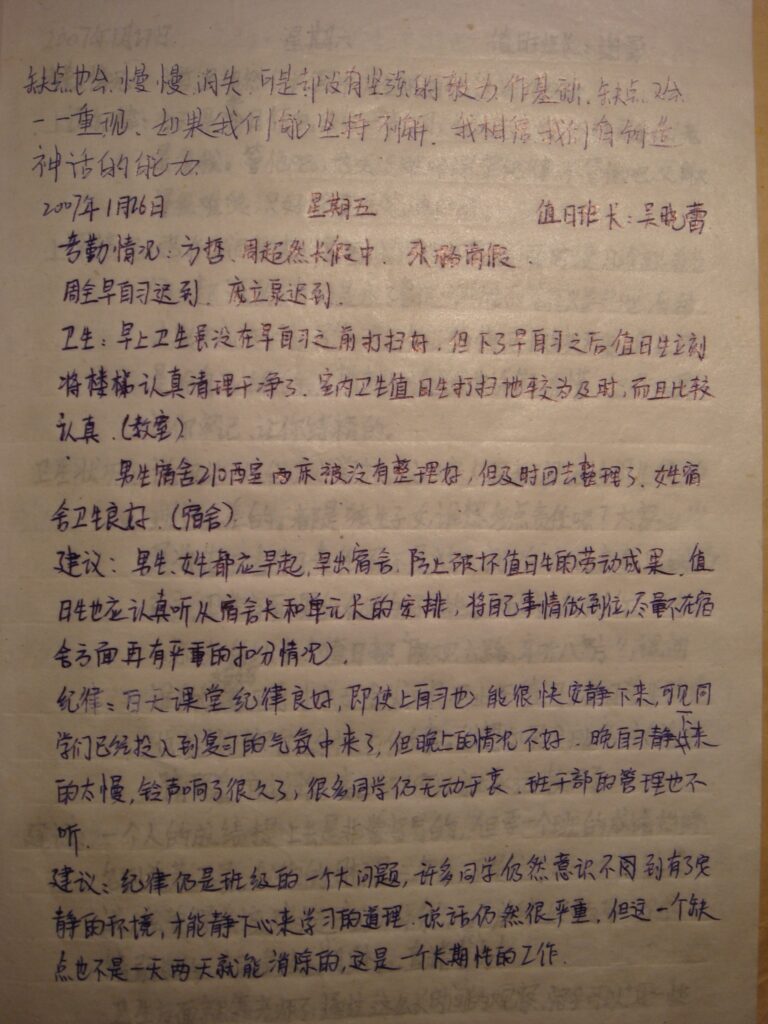 缺点也会慢慢消失,可是却没有坚强的毅力作基础,缺点又会
一一重现.如果我们能坚持不懈.我相信我们有创造
神话的能力.
2007年1月26日 星期五 值日班长:吴晓蕾
考勤情况:方哲、周超然长假中. 张璐请假.
周全早自习迟到、庞立泉迟到.
卫生:早上卫生虽没在早自习之前打扫好,但下了早自习之后值日生立刻
将楼梯认真清理干净了.室内卫生值日生打扫地较为及时,而且比较
认真.(教室)
男生宿舍210两室两床被没有整理好,但及时回去整理了、女生宿
舍卫生良好.(宿舍)
建议:男生、女生都应早起,早出宿舍.防止破坏值日生的劳动成果.值
日生也应认真听从宿舍长和单元长的安排,将自己事情做到位,尽量不在宿
舍方面再有严重的扣分情况).
纪律:百天课堂纪律良好,即使上自习也能很快安静下来,可见同
学们已经投入到复习的气氛中来了,但晚上的情况不好.晚自习静下来
的太慢,铃声响了很久了,很多同学仍无动于衷.班干部的管理也不
听.
建议:纪律仍是班级的一个大问题,许多同学仍然意识不到有了安
静的环境,才能静下心来学习的道理.说话仍然很严重.但这一个缺
点也不是一天两天就能消除的,这是一个长期性的工作.